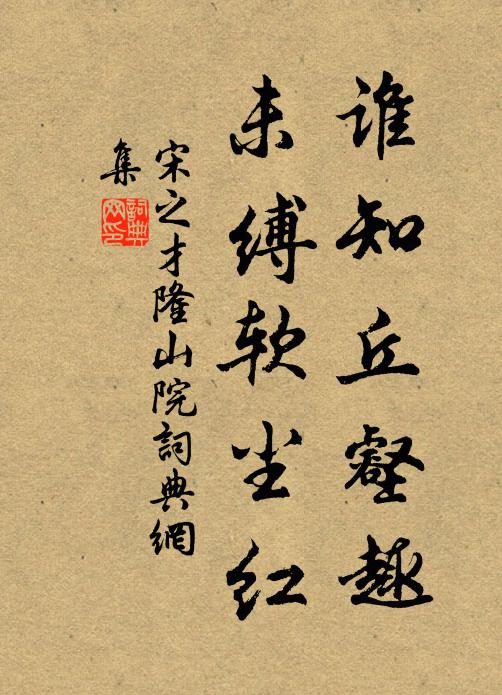 谁知丘壑趣
未缚软尘红
宋之才隆山院詞典網
集
詞典
网印